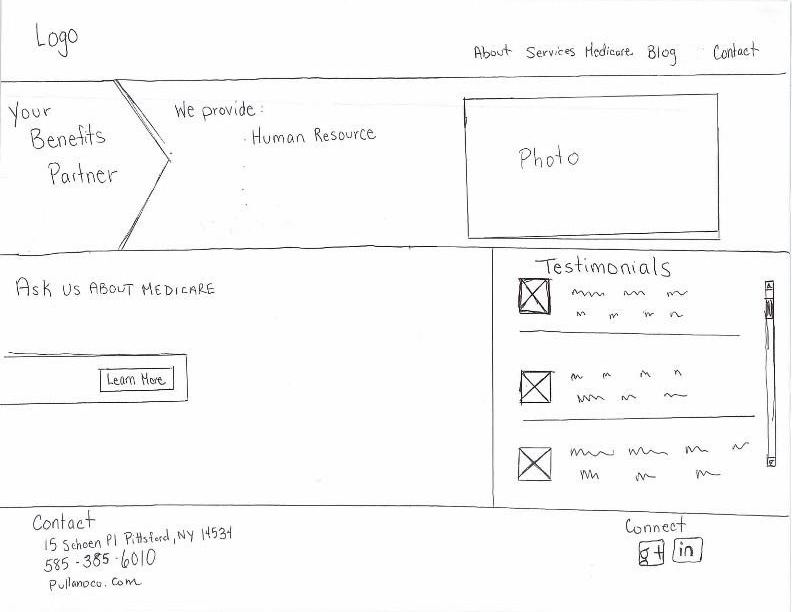 Logo
About Services Medicare Blog Contact
Your
Benefits
Partner
We provide:
· Human Resource
Photo
Ask us ABOUT MEDICARE
Learn More
Testimonials
Contact
15 Schoen Pl Pittsford, NY 14534
585-385-6010
Pullanoco.com
Connect
g+ in